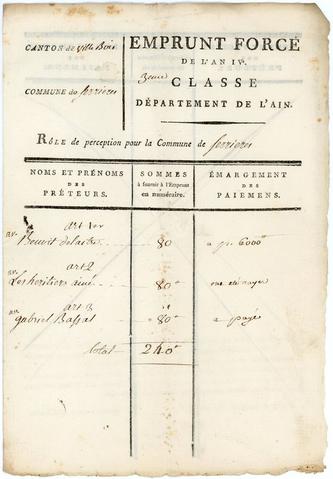 CANTON de Ville Bois
EMPRUNT FORCÉ
DE L'AN IVe.
COMMUNE de serrieres
3eme CLASSE
DÉPARTEMENT DE L'AIN.
RÔLE de perception pour la Commune de serrieres
NOMS ET PRÉNOMS
DES
PRÊTEURS.
SOMMES
à fournir à l'Emprunt
en numéraire.
ÉMARGEMENT
DES
PAIEMENS.
art 1er
Benoit delastre 80 a p. 6000
art 2
Les heritiers aimé 80
art 3
gabriel Bassat 80 a payé
total 240